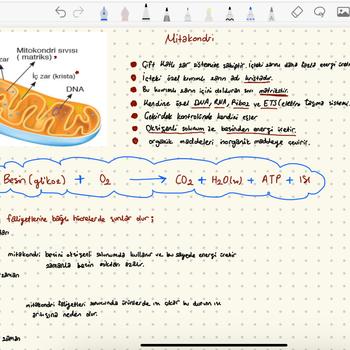 Mitakondri
Mitokondri sıvısı
zar
( matriks)
İç zar (krista)
DNA
Çift katlı zar sistemine sahiptir. İçteki zarın daha fazla enerji üretir
İçteki özel kıvrımlı zarın adı kristadır.
Bu kıvrımlı zarın içini dolduran sıvı matrikstir.
Kendine özel DNA, RNA, Riboz ve ETS (elektron taşıma sistemi)
Çekirdek kontrolünde kendini eşler
Oksijenli solunum ile besinden enerji üretir.
organik maddeleri inorganik maddeye çevirir.
Besin (glikoz) + O2 → CO2 + H2O(su) + ATP + ısı
faaliyetlerine bağlı hücrelerde şunlar olur ;
mitokondri besini oksijenli solunumda kullanır ve bu sayede energi üretir
zaman
zamanla besin miktarı azalır.
mitokondri faaliyetleri sonucunda ürünlerde ısı çıkar bu durum ısı
artışına neden olur.
zaman